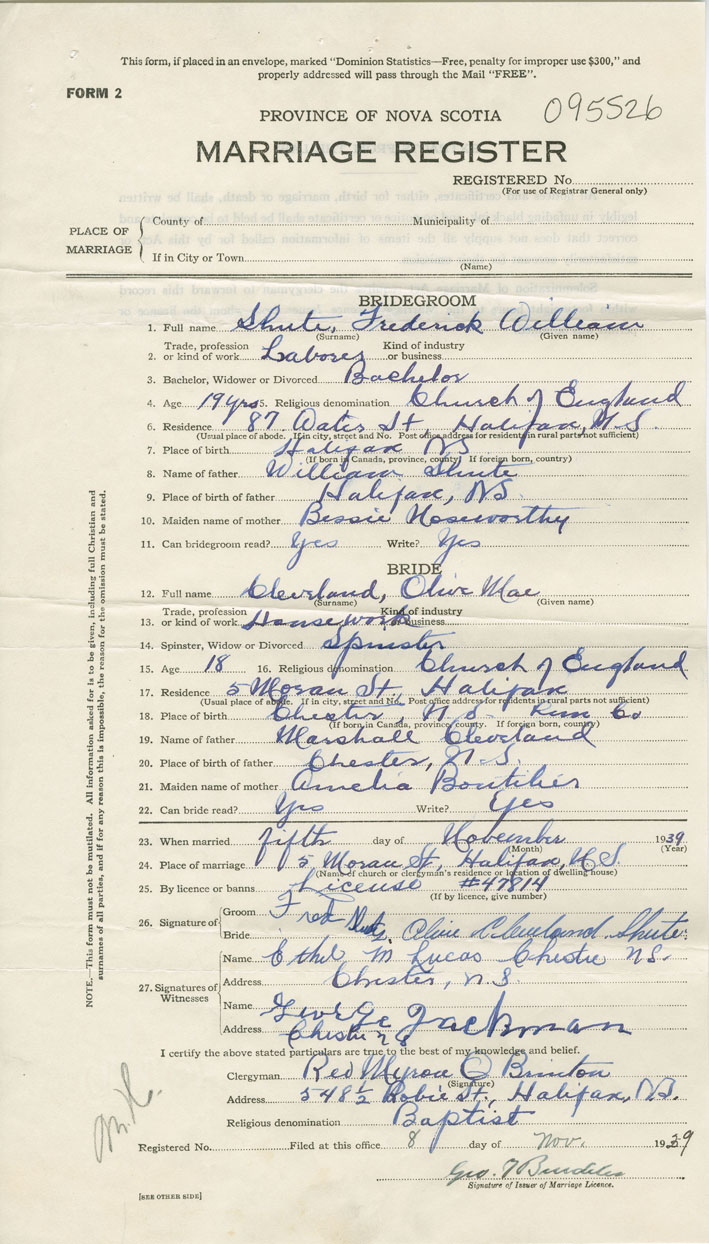 This form, if placed in an envelope, marked "Dominion Statistics—Free, penalty for improper use $300," and
properly addressed will pass through the Mail "FREE".
FORM 2
PROVINCE OF NOVA SCOTIA
095526
MARRIAGE REGISTER
REGISTERED No.
(For use of Registrar General only)
PLACE OF MARRIAGE
County of Municipality of
If in City or Town
(Name)
BRIDEGROOM
1. Full name Shute, Frederick William
(Surname) (Given name)
Trade, profession Kind of industry
2. or kind of work Laborer or business
3. Bachelor, Widower or Divorced Bachelor
4. Age 19 yrs 5. Religious denomination Church of England
6. Residence 87 Water St, Halifax, N.S.
(Usual place of abode. If in city, street and No. Post office address for residents in rural parts not sufficient)
7. Place of birth Halifax NS
(If born in Canada, province, county. If foreign born, country)
8. Name of father William Shute
9. Place of birth of father Halifax, NS.
10. Maiden name of mother Bessie Noseworthy
11. Can bridegroom read? Yes Write? Yes
BRIDE
12. Full name Cleveland, Olive Mae
(Surname) (Given name)
Trade, profession Kind of industry
13. or kind of work Housework or business
14. Spinster, Widow or Divorced Spinster
15. Age 18 16. Religious denomination Church of England
17. Residence 5 Moran St, Halifax
(Usual place of abode. If in city, street and No. Post office address for residents in rural parts not sufficient)
18. Place of birth Chester, N.S. Co
(If born in Canada, province, county. If foreign born, country)
19. Name of father Marshall Cleveland
20. Place of birth of father Chester, N.S.
21. Maiden name of mother Amelia Boutilier
22. Can bride read? Yes Write? Yes
23. When married fifth day of November 1939
(Month) (Year)
24. Place of marriage 5 Moran St, Halifax, N.S.
(Name of church or clergyman's residence or location of dwelling house)
25. By licence or banns License #47814
(If by licence, give number)
26. Signature of
Groom Fred
Bride Olive Cleveland Shute
27. Signatures of Witnesses
Name Ethel M Lucas Chester N.S.
Address Chester, N.S.
Name George Jackman
Address Chester N S
I certify the above stated particulars are true to the best of my knowledge and belief.
Clergyman Rev Myron O Brinton
(Signature)
Address 548½ Robie St., Halifax, N.S.
Religious denomination Baptist
Registered No. Filed at this office 8 day of Nov. 1939
Signature of Issuer of Marriage Licence.
[SEE OTHER SIDE]
NOTE.—This form must not be mutilated. All information asked for is to be given, including full Christian and
surnames of all parties, and if for any reason this is impossible, the reason for the omission must be stated.